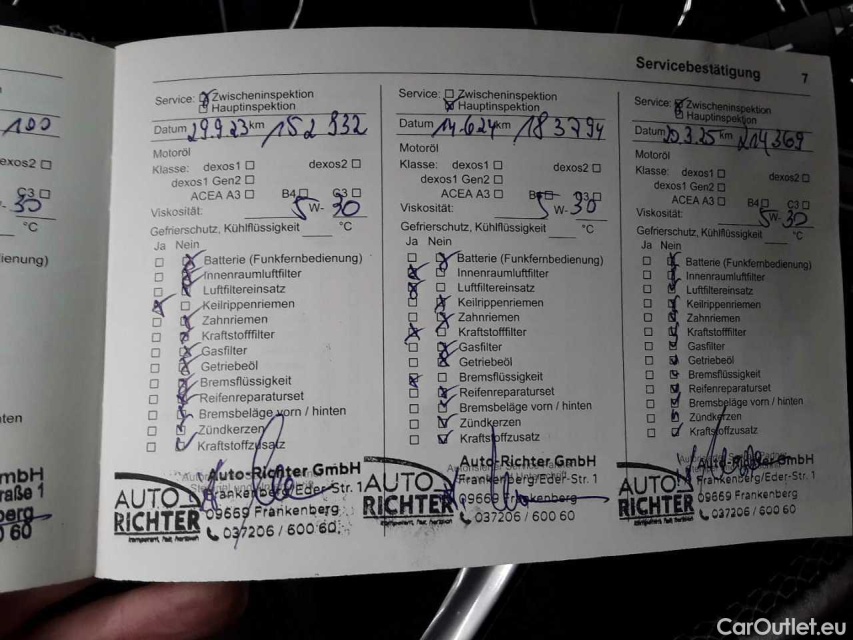 Servicebestätigung 7
100
exos2
C3
30
°C
ienung)
ten
mbH
raße 1
erg
0 60
Service: Zwischeninspektion
Hauptinspektion
Datum 29.9.23 km 152 932
Motoröl
Klasse: dexos1 dexos2
dexos1 Gen2
ACEA A3 B4 C3
Viskosität: 5 W- 30
Gefrierschutz, Kühlflüssigkeit °C
Ja Nein
Batterie (Funkfernbedienung)
Innenraumluftfilter
Luftfiltereinsatz
Keilrippenriemen
Zahnriemen
Kraftstofffilter
Gasfilter
Getriebeöl
Bremsflüssigkeit
Reifenreparaturset
Bremsbeläge vorn / hinten
Zündkerzen
Kraftstoffzusatz
AUTO RICHTER
Auto-Richter GmbH
Frankenberg/Eder-Str. 1
09669 Frankenberg
037206 / 600 60
Service: Zwischeninspektion
Hauptinspektion
Datum 14.6.24 km 183794
Motoröl
Klasse: dexos1 dexos2
dexos1 Gen2
ACEA A3 B4 C3
Viskosität: 5 W- 30
Gefrierschutz, Kühlflüssigkeit °C
Ja Nein
Batterie (Funkfernbedienung)
Innenraumluftfilter
Luftfiltereinsatz
Keilrippenriemen
Zahnriemen
Kraftstofffilter
Gasfilter
Getriebeöl
Bremsflüssigkeit
Reifenreparaturset
Bremsbeläge vorn / hinten
Zündkerzen
Kraftstoffzusatz
AUTO RICHTER
Auto-Richter GmbH
Frankenberg/Eder-Str. 1
09669 Frankenberg
037206 / 600 60
Service: Zwischeninspektion
Hauptinspektion
Datum 20.3.25 km 214369
Motoröl
Klasse: dexos1 dexos2
dexos1 Gen2
ACEA A3 B4 C3
Viskosität: 5 W- 30
Gefrierschutz, Kühlflüssigkeit °C
Ja Nein
Batterie (Funkfernbedienung)
Innenraumluftfilter
Luftfiltereinsatz
Keilrippenriemen
Zahnriemen
Kraftstofffilter
Gasfilter
Getriebeöl
Bremsflüssigkeit
Reifenreparaturset
Bremsbeläge vorn / hinten
Zündkerzen
Kraftstoffzusatz
AUTO RICHTER
Auto-Richter GmbH
Frankenberg/Eder-Str. 1
09669 Frankenberg
037206 / 600 60
CarOutlet.eu